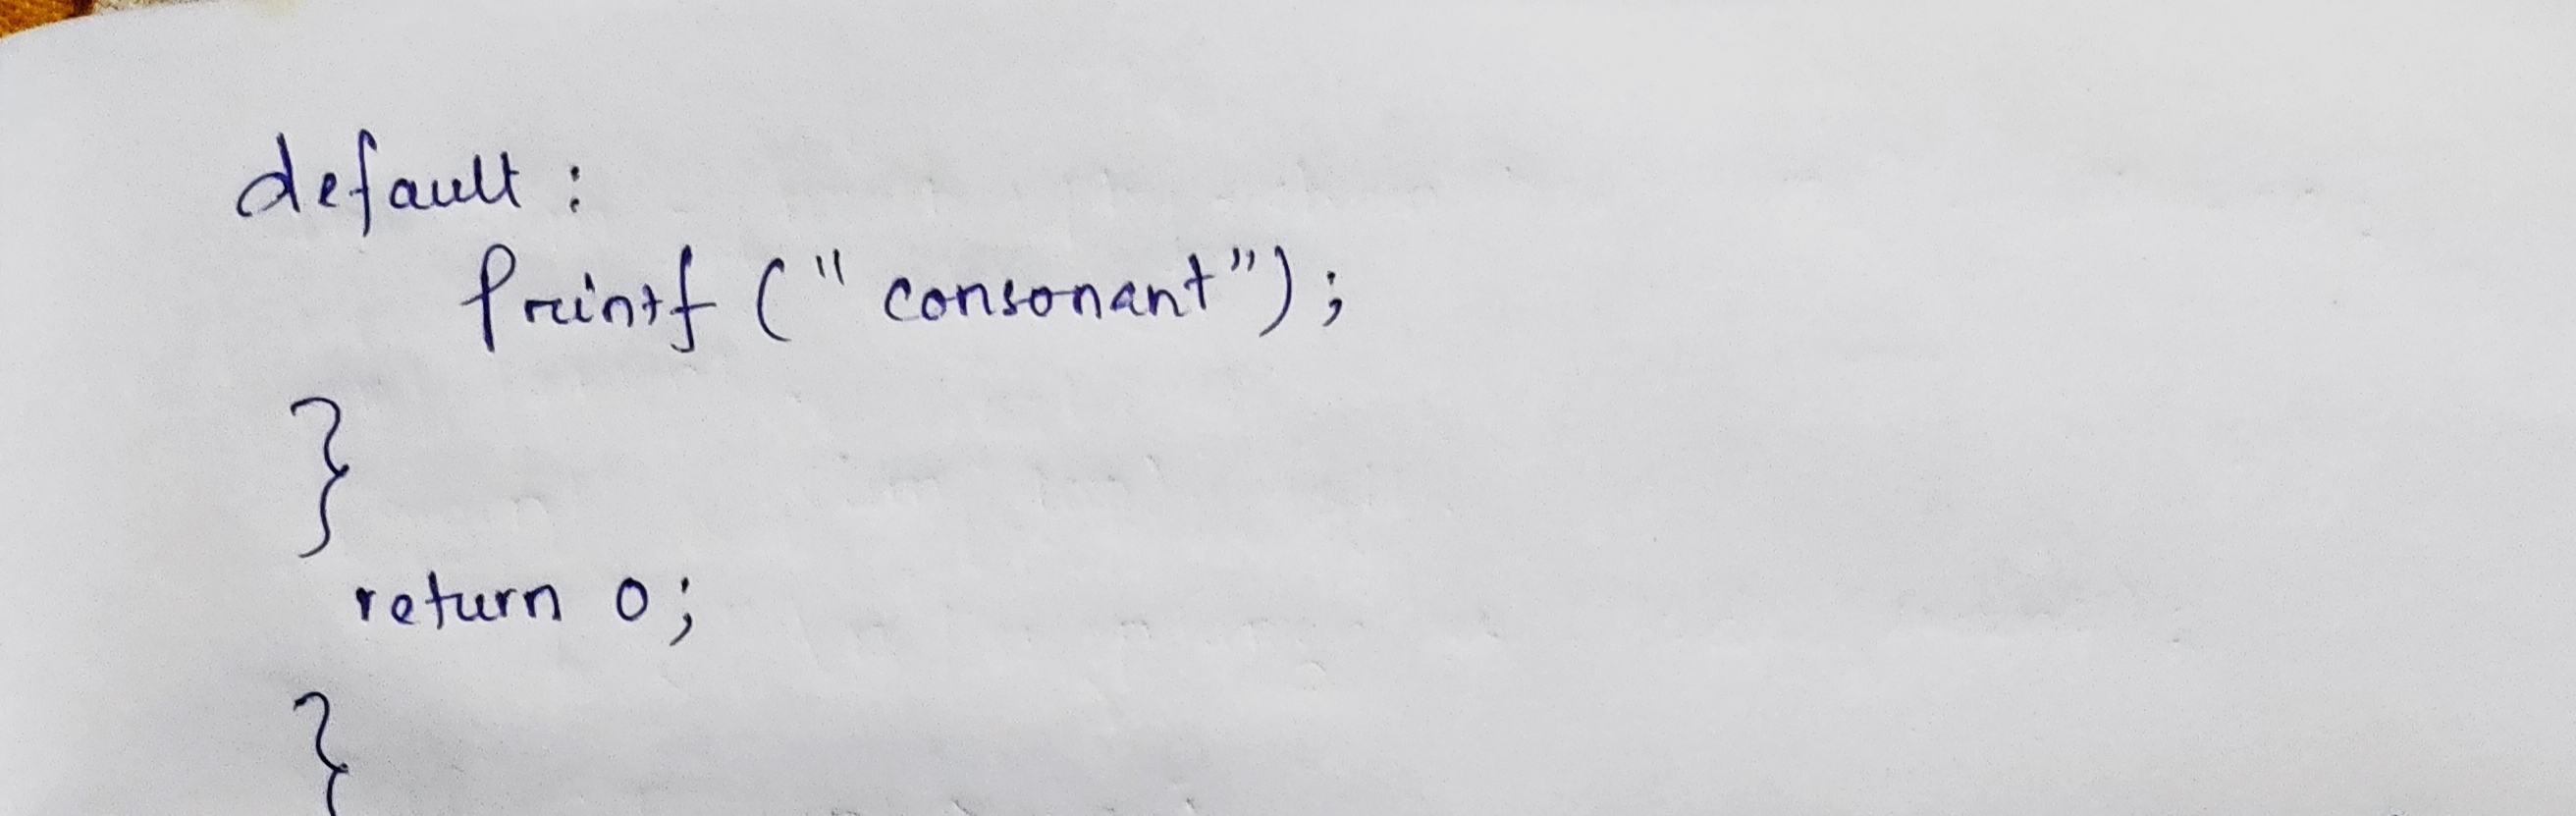 default :
printf (" consonant");
}
return 0;
}